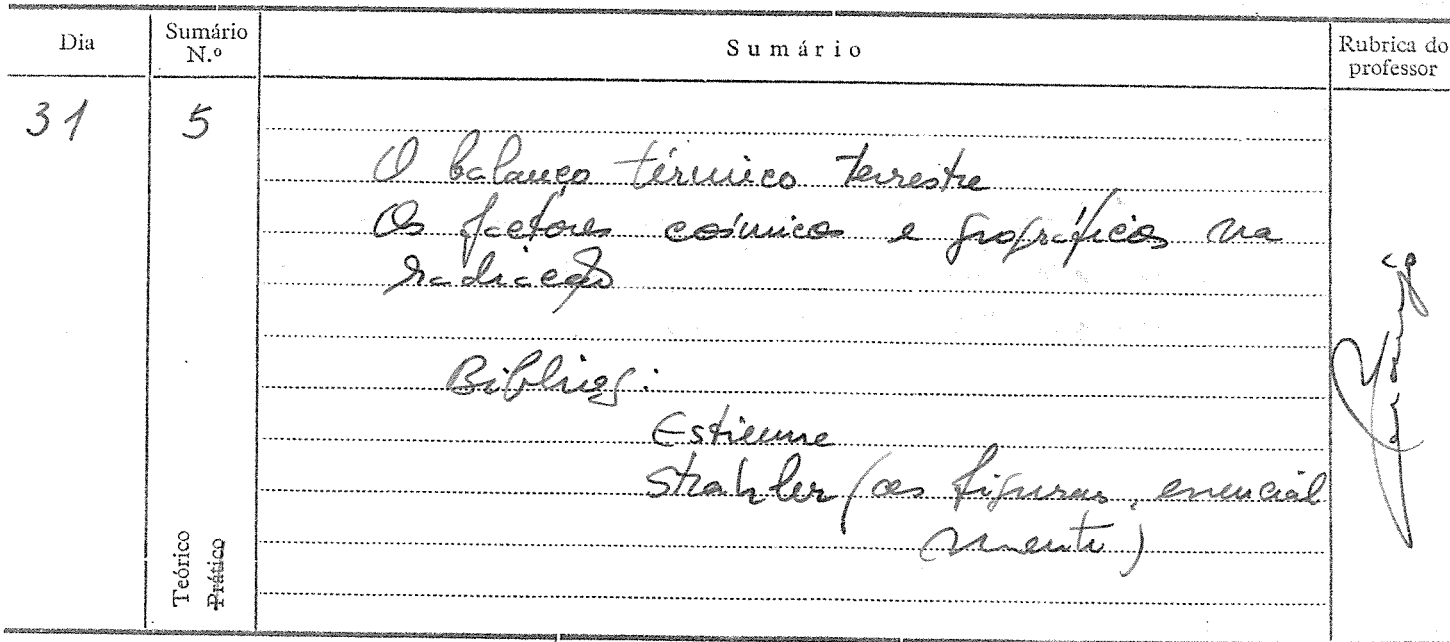 Dia
Sumário N.º
Sumário
Rubrica do professor
31
5
O balanço térmico terrestre
Os factores cósmicos e geográficos na
radiação
Bibliog:
Estienne
Strahler (as figuras, essencial
mente)
Teórico
Prático